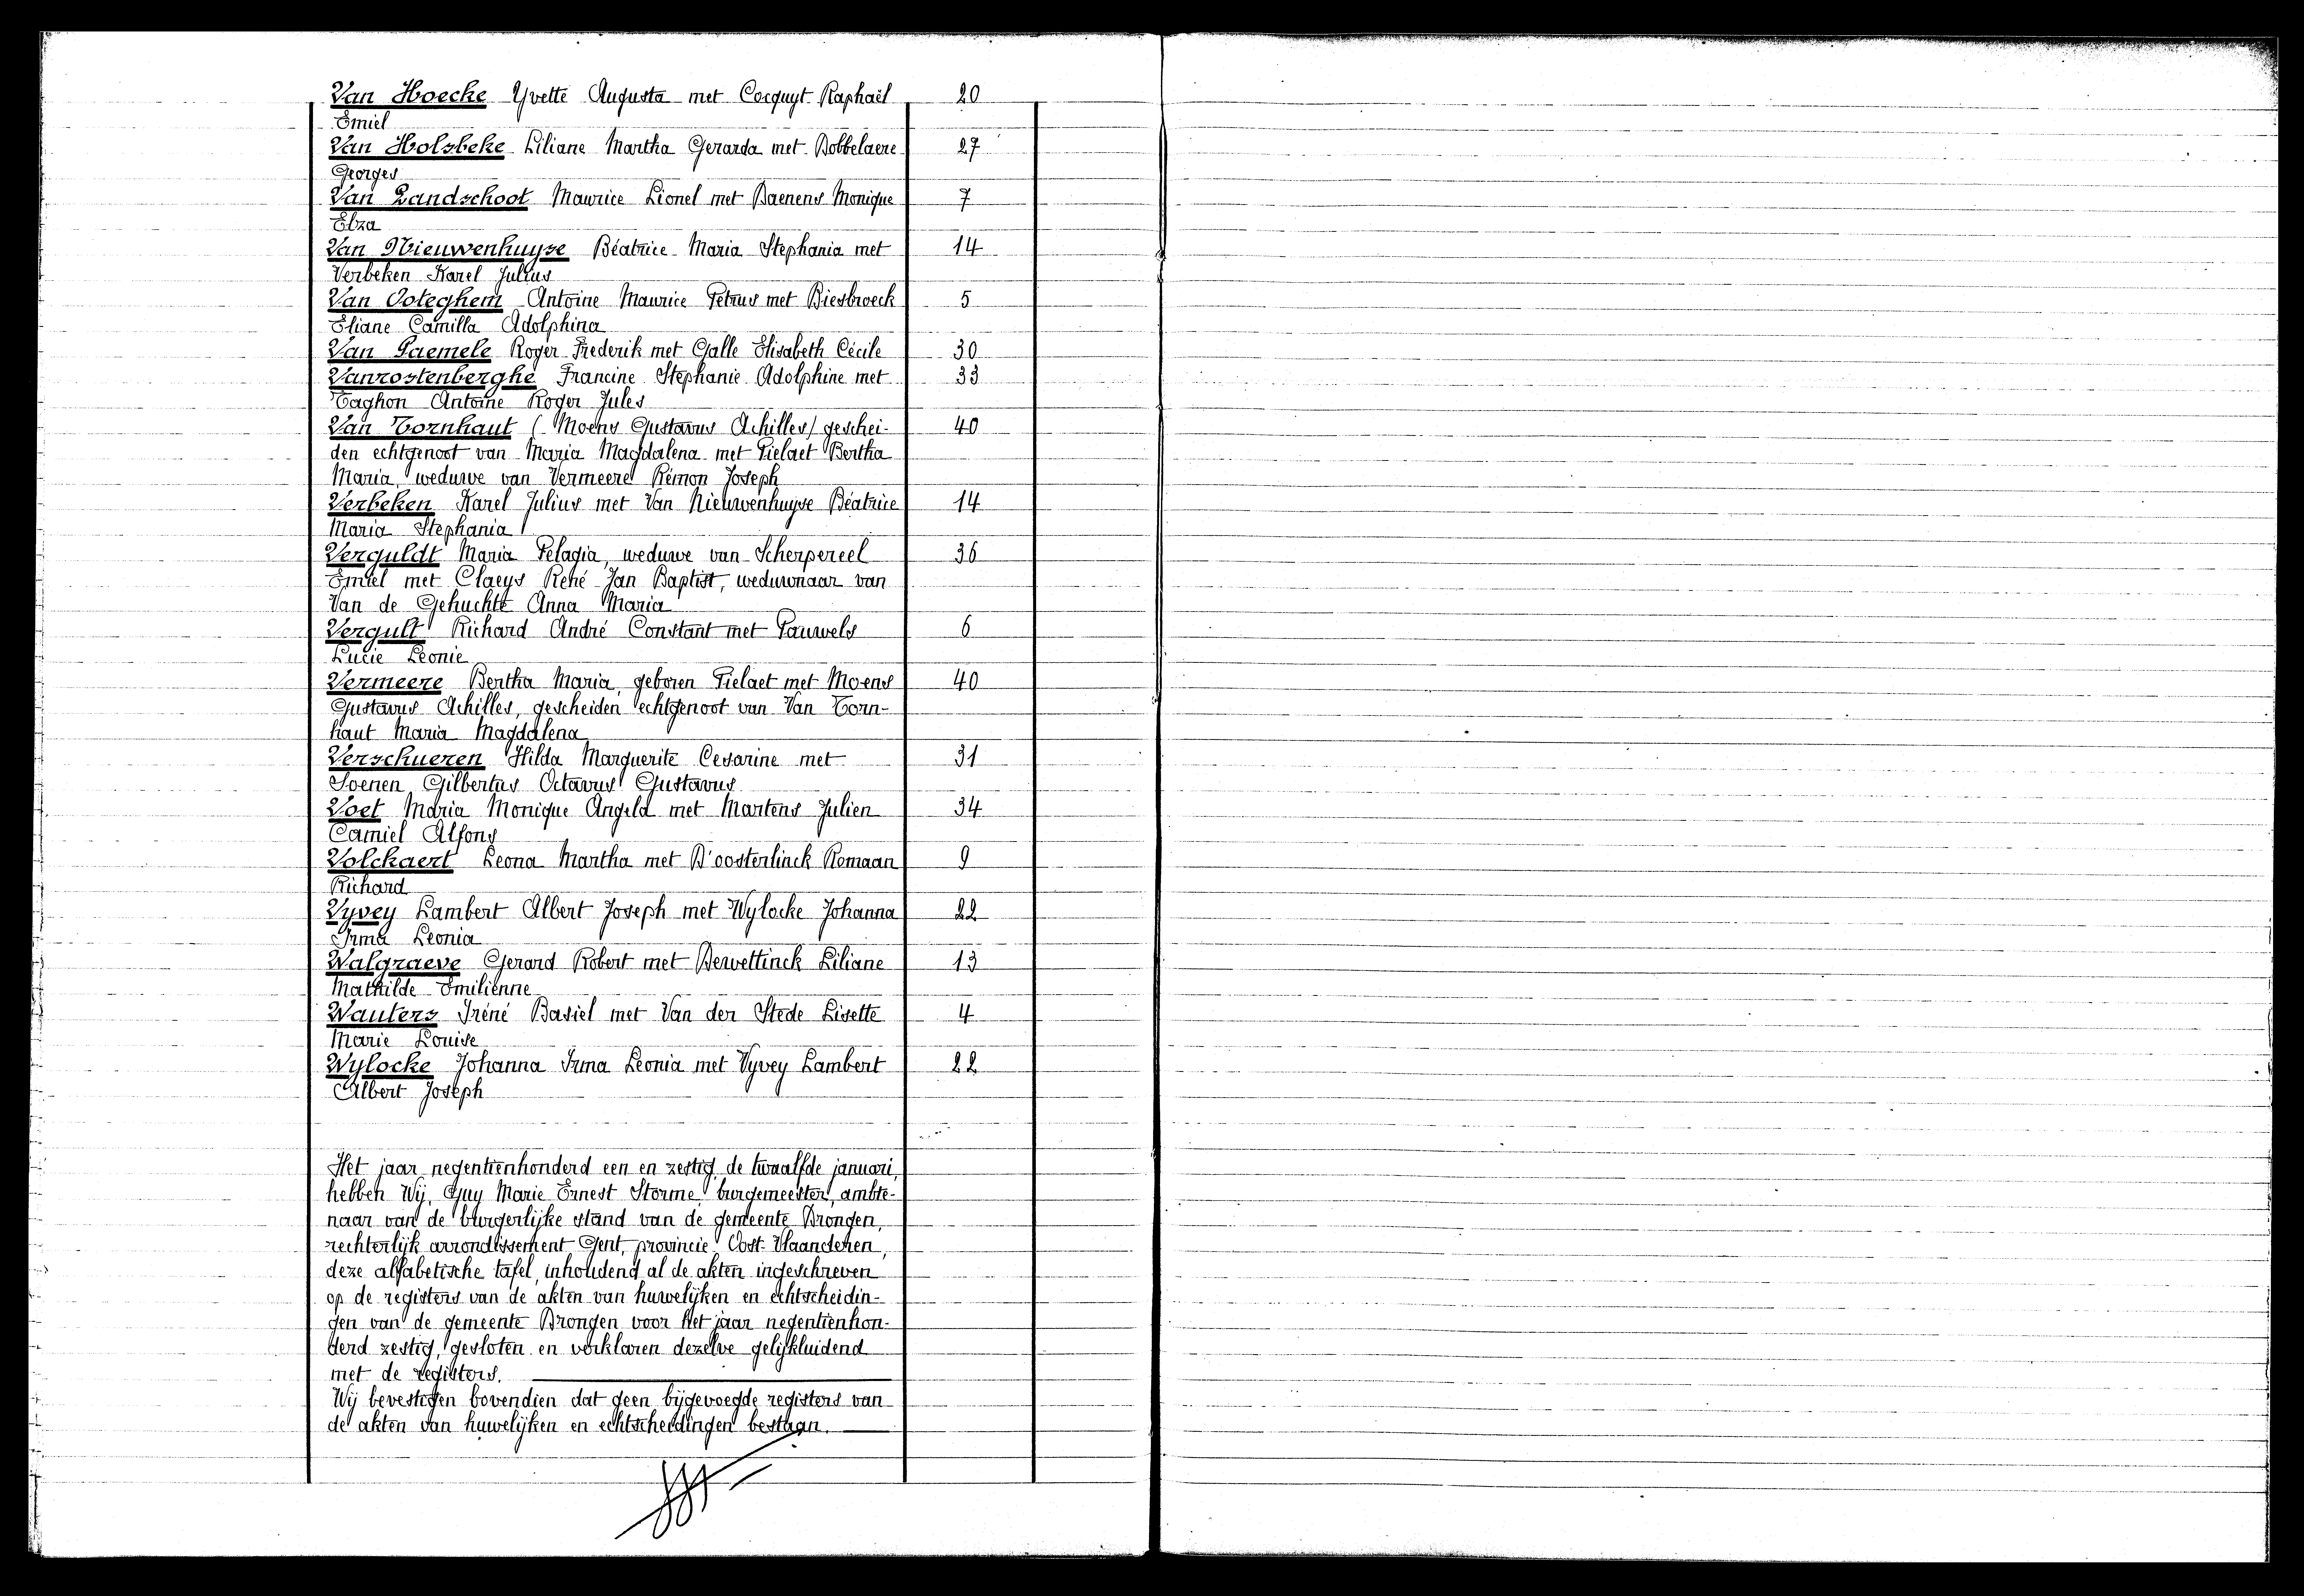 Van Hoecke Yvette Augusta met Cocquyt Raphaël 20
Emiel
Van Holsbeke Liliane Martha Gerarda met Dobbelaere 27
Georges
Van Landschoot Maurice Lionel met Daenens Monique 7
Elza
Van Nieuwenhuyse Béatrice Maria Stephania met 14
Verbeken Karel Julius
Van Ooteghem Antoine Maurice Petrus met Biesbroeck 5
Eliane Camilla Adolphina
Van Paemele Roger Frederik met Galle Elisabeth Cécile 30
Vanrostenberghe Francine Stephanie Adolphine met 33
Taghon Antoine Roger Jules
Van Tornhaut (Moens Gustavus Achilles) geschei- 40
den echtgenoot van Maria Magdalena met Pielaet Bertha
Maria, weduwe van Vermeere Rémon Joseph
Verbeken Karel Julius met Van Nieuwenhuyse Béatrice 14
Maria Stephania
Verguldt Maria Pelagia, weduwe van Scherpereel 36
Emiel met Claeys René Jan Baptist, weduwnaar van
Van de Gehuchte Anna Maria
Vergult Richard André Constant met Pauwels 6
Lucie Leonie
Vermeere Bertha Maria, geboren Pielaet met Moens 40
Gustavus Achilles, gescheiden echtgenoot van Van Torn-
haut Maria Magdalena
Verschueren Hilda Marguerite Cesarine met 31
Soenen Gilbertus Octavus Gustavus
Voet Maria Monique Angela met Martens Julien 34
Camiel Alfons
Volckaert Leona Martha met D'oosterlinck Romaan 9
Richard
Vyvey Lambert Albert Joseph met Wylocke Johanna 22
Irma Leonia
Walgraeve Gerard Robert met Dewettinck Liliane 13
Mathilde Emilienne
Wauters Iréné Basiel met Van der Stede Lisette 4
Marie Louise
Wylocke Johanna Irma Leonia met Vyvey Lambert 22
Albert Joseph
Het jaar negentienhonderd een en zestig, de twaalfde januari,
hebben Wij, Guy Marie Ernest Storme, burgemeester, ambte-
naar van de burgerlijke stand van de gemeente Drongen,
rechterlijk arrondissement Gent, provincie Oost-Vlaanderen,
deze alfabetische tafel, inhoudend al de akten ingeschreven
op de registers van de akten van huwelijken en echtscheidin-
gen van de gemeente Drongen voor het jaar negentienhon-
derd zestig, gesloten en verklaren dezelve gelijkluidend
met de registers.
Wij bevestigen bovendien dat geen bijgevoegde registers van
de akten van huwelijken en echtscheidingen bestaan.